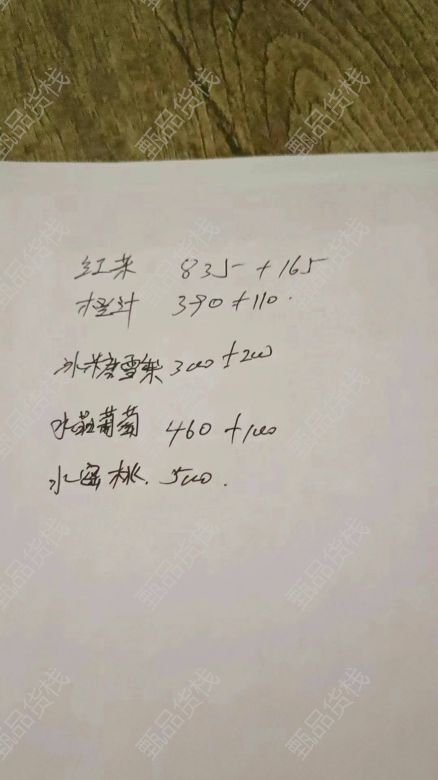 红茶 835+165
橙汁 390+110.
冰糖雪梨 300+200
水晶葡萄 460+100
水蜜桃. 500.
甄品货栈